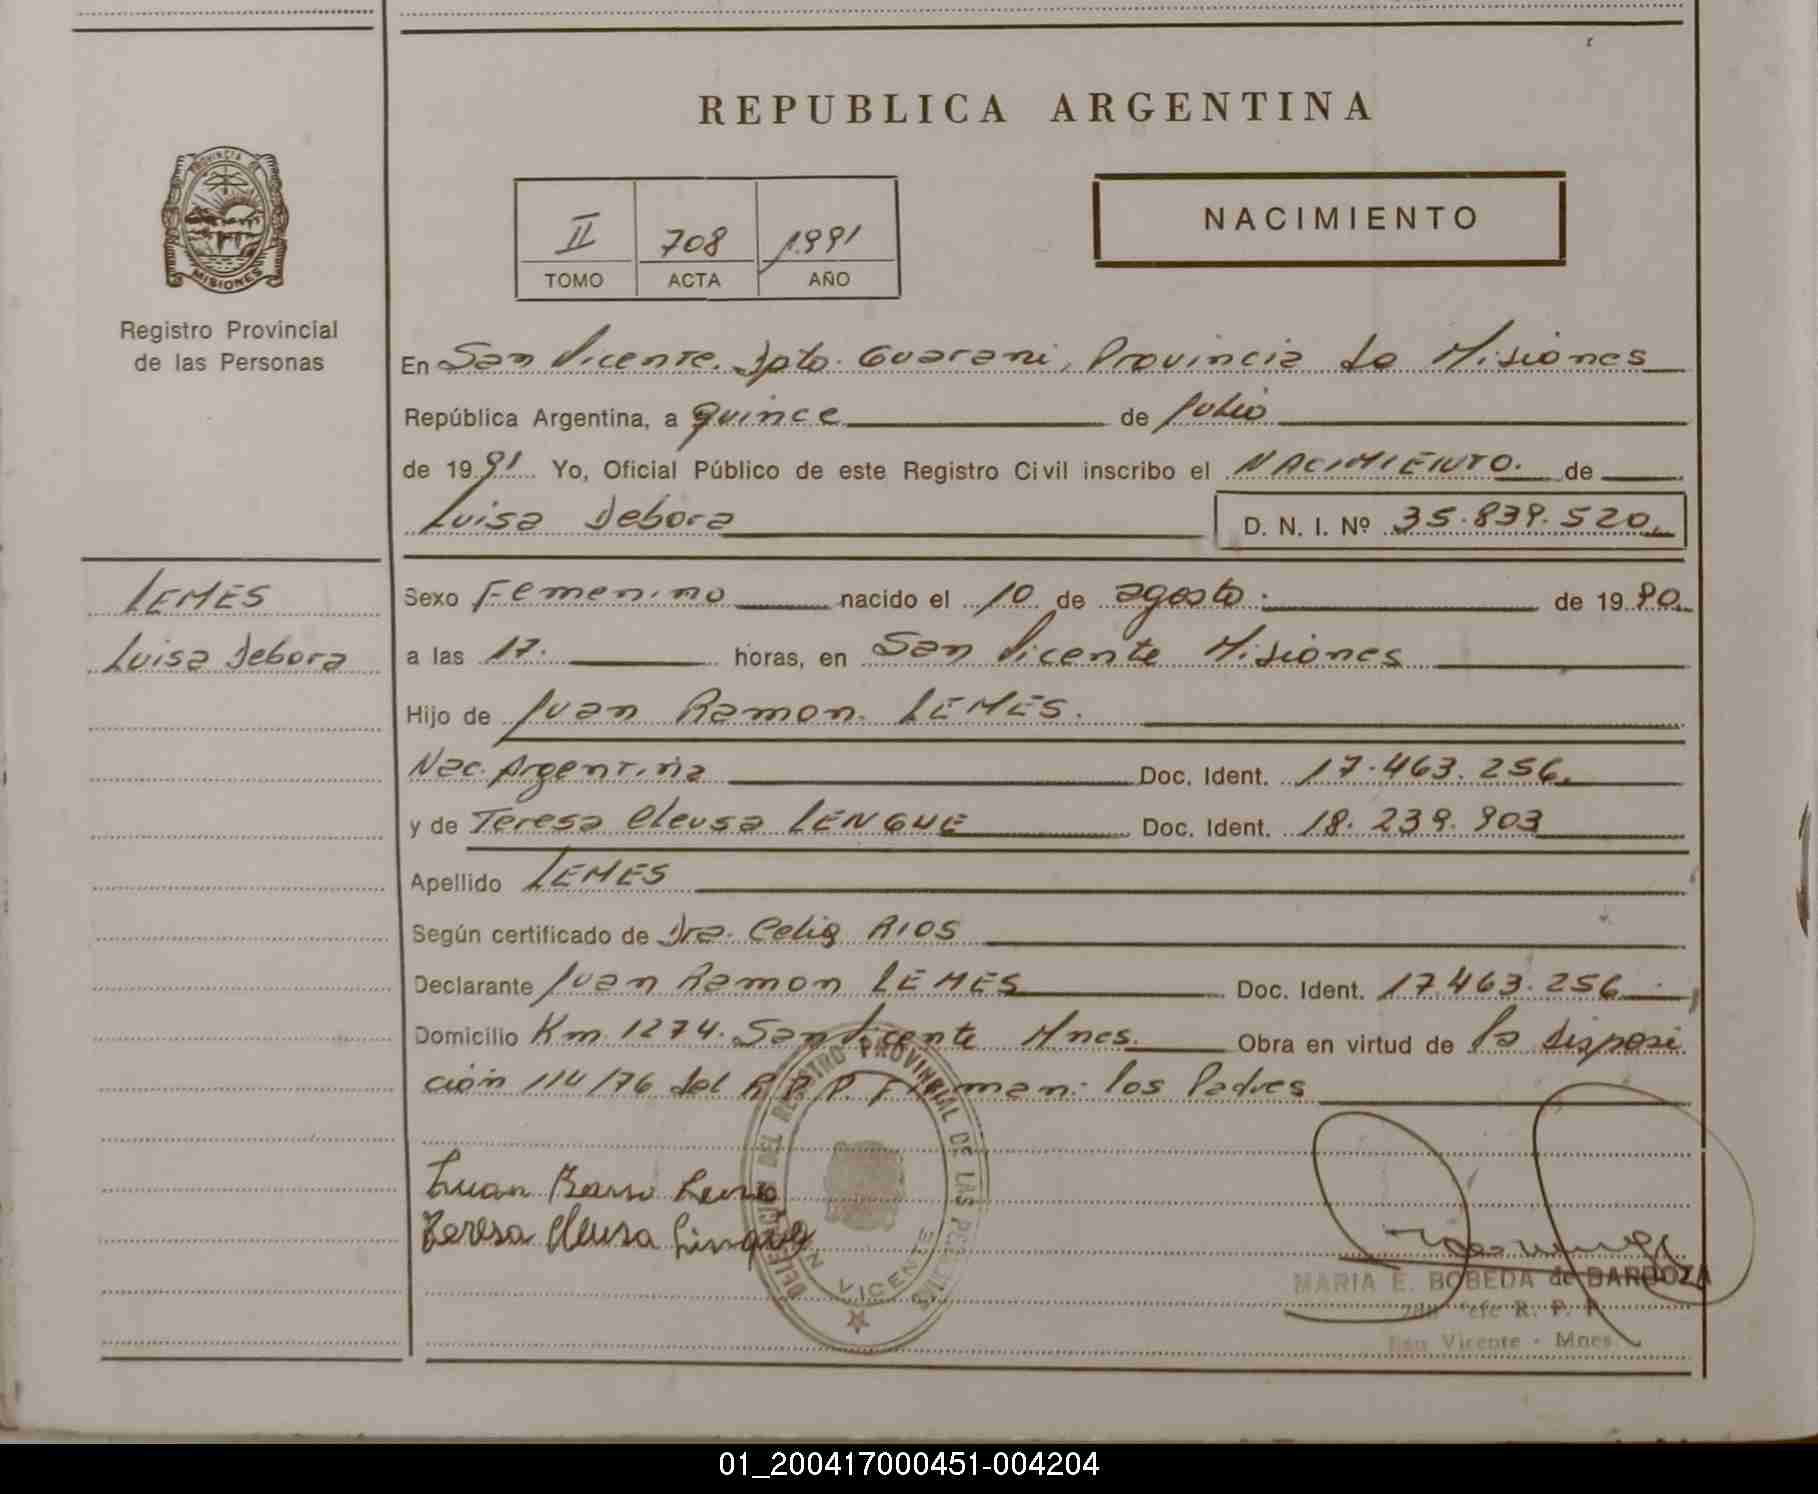 REPUBLICA ARGENTINA
PROVINCIA DE
MISIONES
Registro Provincial
de las Personas
II 708 1991
TOMO ACTA AÑO
NACIMIENTO
En San Vicente. Dpto. Guarani, Provincia de Misiones
República Argentina, a quince de Julio
de 1991 Yo, Oficial Público de este Registro Civil inscribo el NACIMIENTO. de
Luisa Debora D. N. I. Nº 35.839.520
LEMES
Luisa Debora
Sexo Femenino nacido el 10 de agosto. de 1990
a las 17. horas, en San Vicente Misiones
Hijo de Juan Ramon LEMES.
Nac. Argentina Doc. Ident. 17.463.256.
y de Teresa Cleusa LENGUE Doc. Ident. 18.239.903
Apellido LEMES
Según certificado de Dra. Celia RIOS
Declarante Juan Ramon LEMES Doc. Ident. 17.463.256
Domicilio Km. 1274. San Vicente Mnes. Obra en virtud de la disposi
ción 114/76 del R.P.P. Firman: los Padres
Juan
Teresa Cleusa
DEL REGISTRO PROVINCIAL DE LAS
VICENTE
MARIA E. BOBEDA de BARDOZA
R. P. P.
San Vicente - Mnes.
01_200417000451-004204